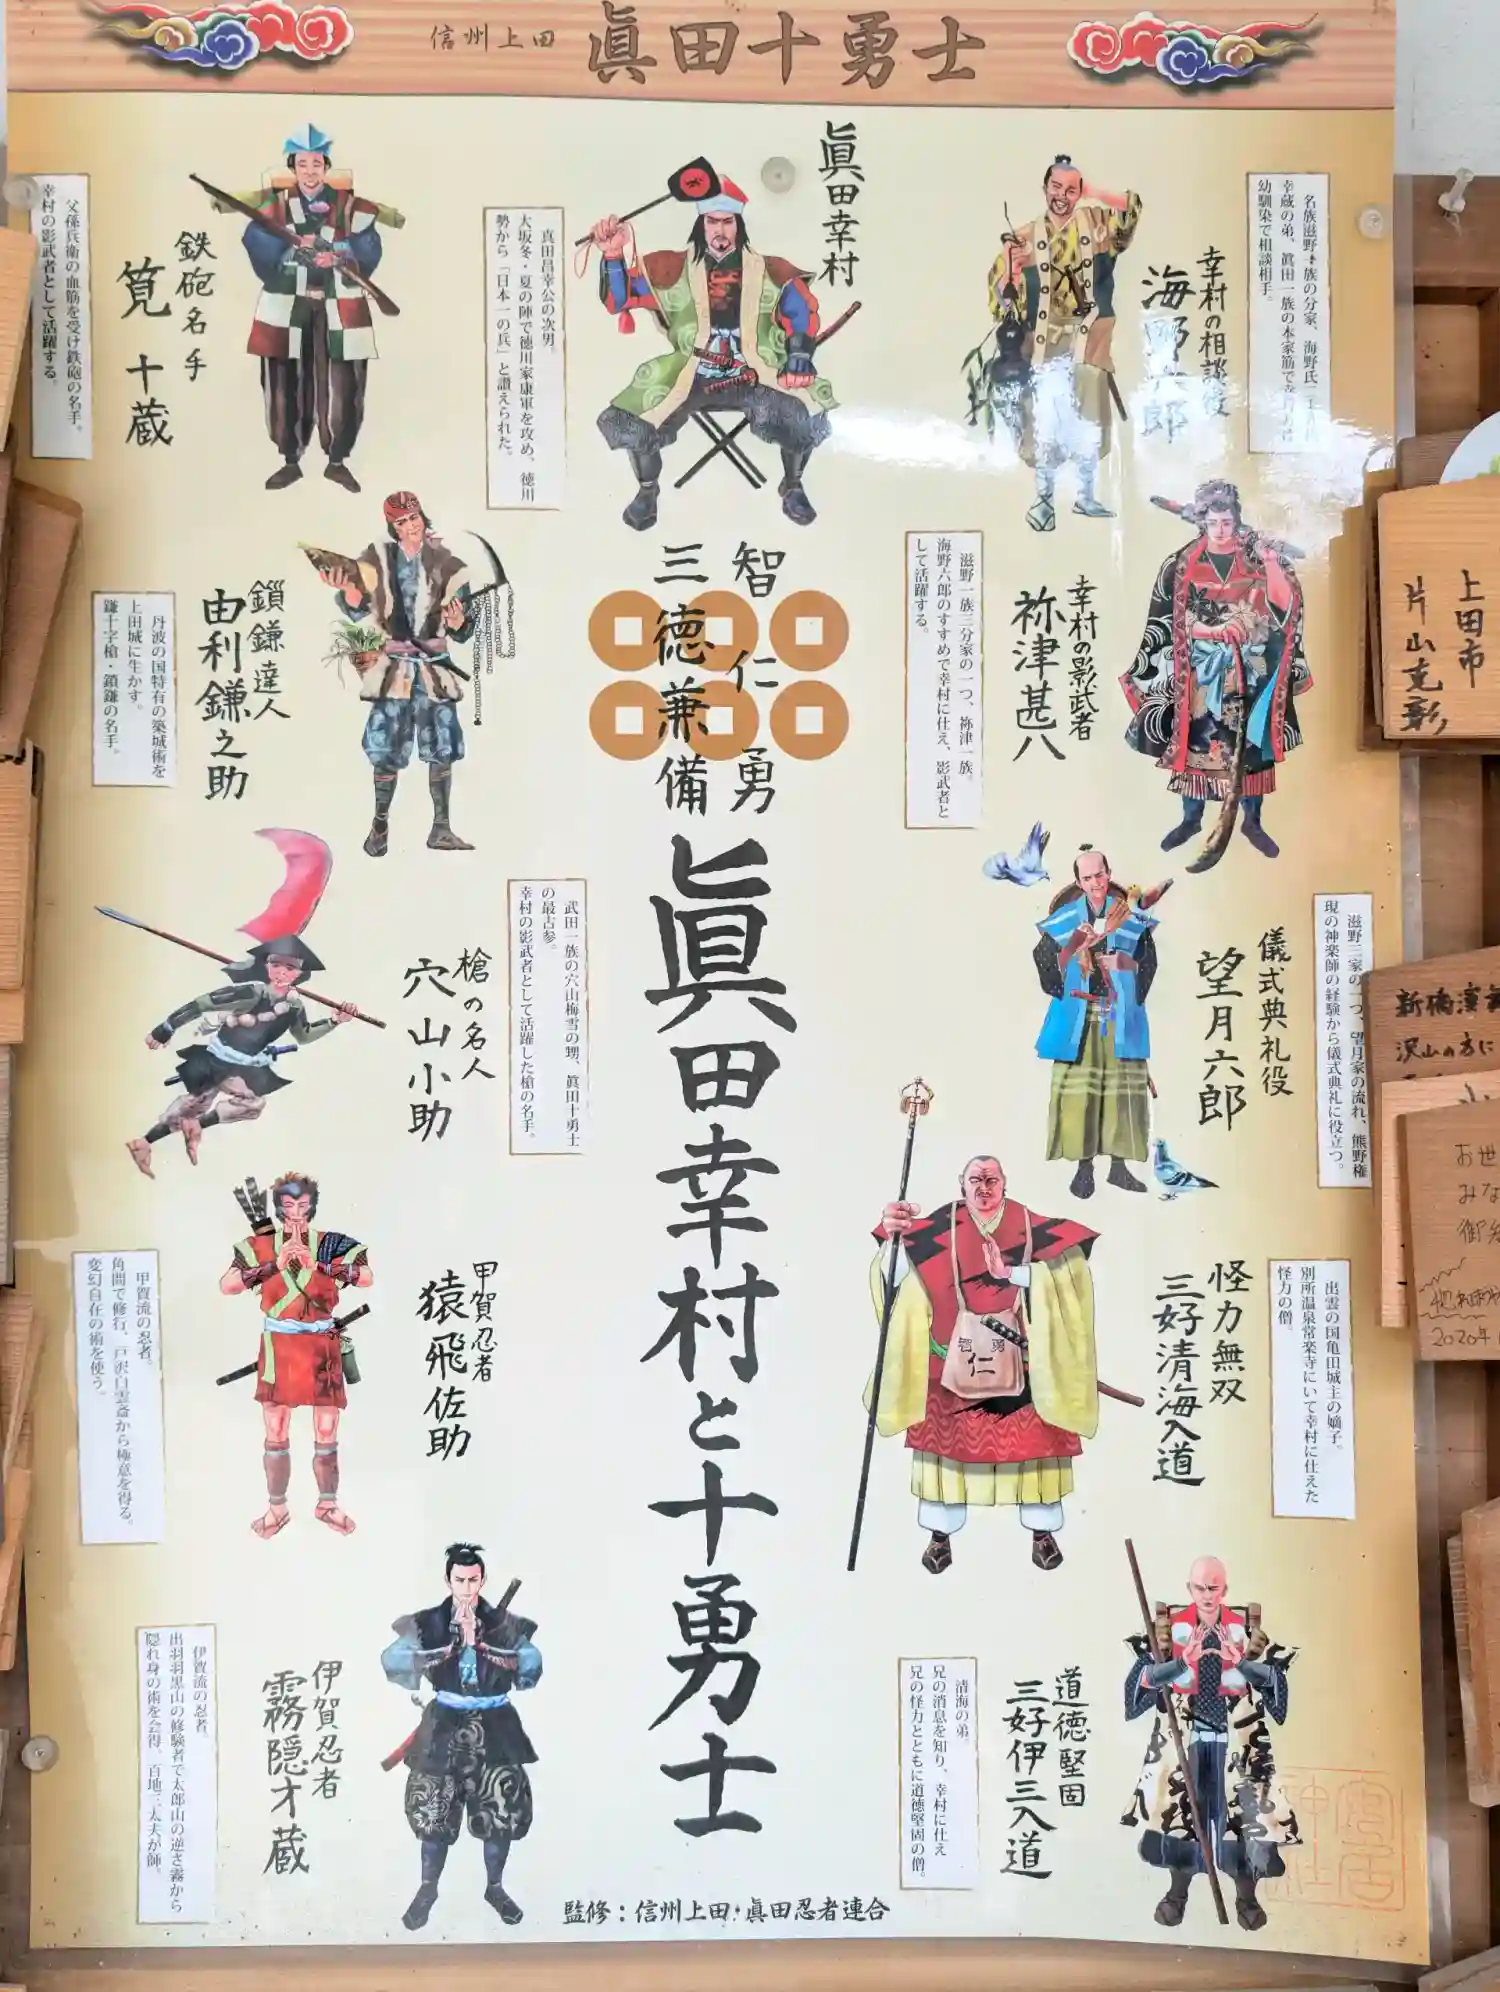 信州上田 眞田十勇士
眞田幸村
真田昌幸公の次男。
大坂冬・夏の陣で徳川家康軍を攻め、徳川
勢から「日本一の兵」と讃えられた。
幸村の相談役
海野六郎
幸蔵の弟、眞田一族の本家筋で
幼馴染で相談相手。
鉄砲名手
筧十蔵
父孫兵衛の血筋を受け鉄砲の名手。
幸村の影武者として活躍する。
幸村の影武者
祢津甚八
滋野一族三分家の一つ、祢津一族。
海野六郎のすすめで幸村に仕え、影武者と
して活躍する。
鎖鎌達人
由利鎌之助
丹波の国特有の築城術を
上田城に生かす。
鎌十字槍・鎖鎌の名手。
智 仁 勇
三徳兼備
眞田幸村と十勇士
儀式典礼役
望月六郎
滋野三家の一つ、望月家の流れ、熊野権
現の神楽師の経験から儀式典礼に役立つ。
槍の名人
穴山小助
武田一族の穴山梅雪の甥、眞田十勇士
の最古参。
幸村の影武者として活躍した槍の名手。
怪力無双
三好清海入道
出雲の国亀田城主の嫡子。
別所温泉常楽寺にいて幸村に仕えた
怪力の僧。
智 勇
仁
甲賀忍者
猿飛佐助
甲賀流の忍者。
角間で修行、戸沢白雲斎から極意を得る。
変幻自在の術を使う。
道徳堅固
三好伊三入道
清海の弟。
兄の消息を知り、幸村に仕え
兄の怪力とともに道徳堅固の僧。
伊賀忍者
霧隠才蔵
伊賀流の忍者。
出羽羽黒山の修験者で太郎山の逆さ霧から
隠れ身の術を会得、百地三太夫が師。
監修：信州上田・眞田忍者連合
上田市
片山克彰
2020年